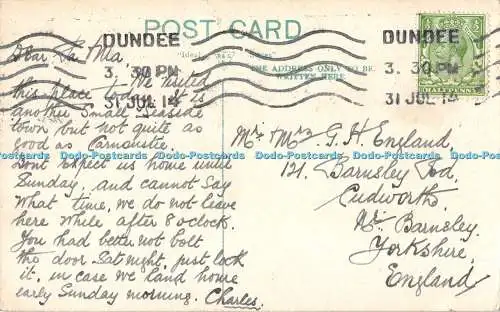 POST CARD
DUNDEE
3. 30 PM
31 JUL 14
DUNDEE
3. 30 PM
31 JUL 14
HALFPENNY
THE ADDRESS ONLY TO BE
WRITTEN HERE
Dear Pa & Ma
We visited
this place today. It is
another small seaside
town but not quite as
good as Carnoustie.
Dont expect us home until
Sunday, and cannot say
what time, we do not leave
here while after 8 oclock.
You had better not bolt
the door Sat night, just lock
it, in case we land home
early Sunday morning. Charles.
Mr & Mrs G. H. England,
121, Barnsley Rd,
Cudworth,
Nr. Barnsley.
Yorkshire.
England
Dodo-Postcards Dodo-Postcards Dodo-Postcards Dodo-Postcards Dodo-Postcards Dodo-Postcards